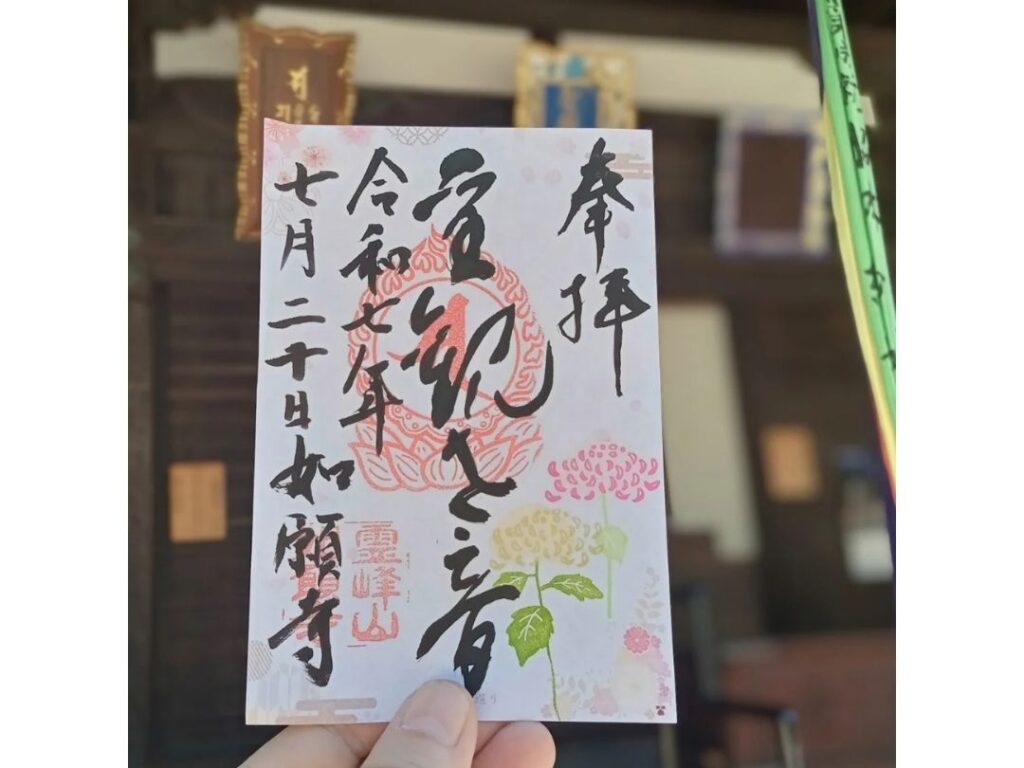 奉拝
聖観世音
令和七年
七月二十日如願寺
峰山